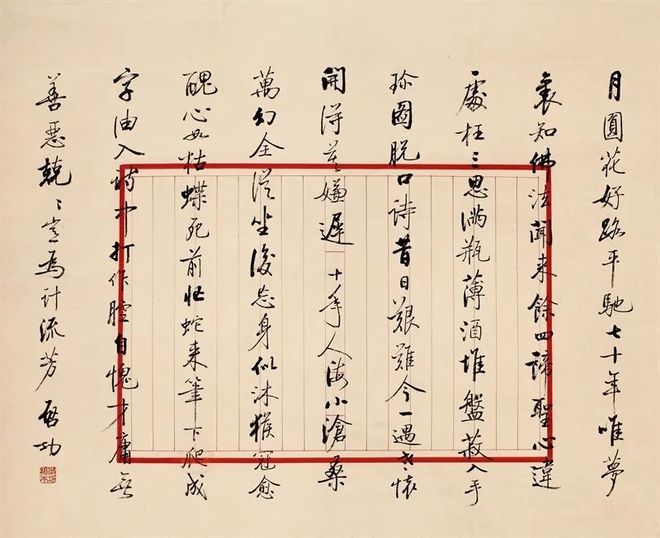 月圓花好路平馳七十年唯夢
裏知佛法聞來餘四諦聖心違
處枉三思滿瓶薄酒堆盤菽入手
珍圖脫口詩昔日艱難今一遇老懷
開得莫嫌遲 十年人海小滄桑
萬幻全從坐後忘身似沐猴冠愈
醜心如枯蝶死前忙蛇來筆下爬成
字油入詩中打作腔自愧才庸無
善惡兢〻豈為計流芳 啟功